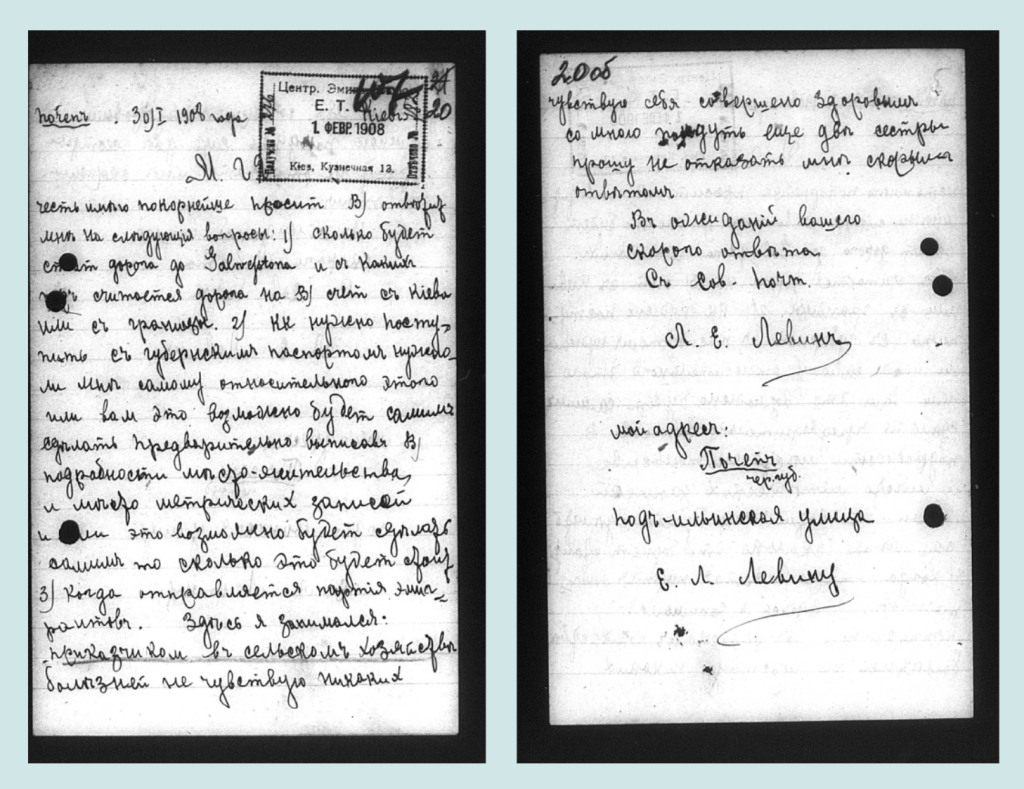 20
Почепъ 30/I 1908 года
Центр. Эми
Е. Т. О. Кіевъ
1. ФЕВР. 1908
Получен №
Отвѣчено №
Кіев, Кузнечная 13.
М. Г.
честь имѣю покорнейще просит В/ отвѣтит
мнѣ на слѣдующія вопросы: 1) сколько будет
дорога до Галвестона и съ какихъ
считается дорога на В/ счет съ Кіева
или съ границы. 2) Кк нужно посту-
пить съ губернскимъ паспортомъ нужно-
ли мнѣ самому относительного этого
или вам это возможно будет самимъ
сдѣлать предварительно выписавъ В/
подрабности мѣсто-жительства,
и мѣсто метрических записей
и это возможно будет сдѣлать
самимъ то сколько это будет стоит
3) Когда отправляется партія эмиг-
рантовъ. Здѣсь я занимался:
приказчиком въ сельскомъ хозяйствы
болызней не чувствую никаких
20 об
чувствую себя совершено здоровымъ
со мною поедуть еще двы сестры
прошу не отказать мнѣ скорымъ
отвытомъ
Въ ожиданій вашего
скораго отвыта
Съ сов. почт.
Л. Е. Левинъ
мой адресъ:
Почепъ
чер. губ.
подъ-ильинская улица
Е. Л. Левину